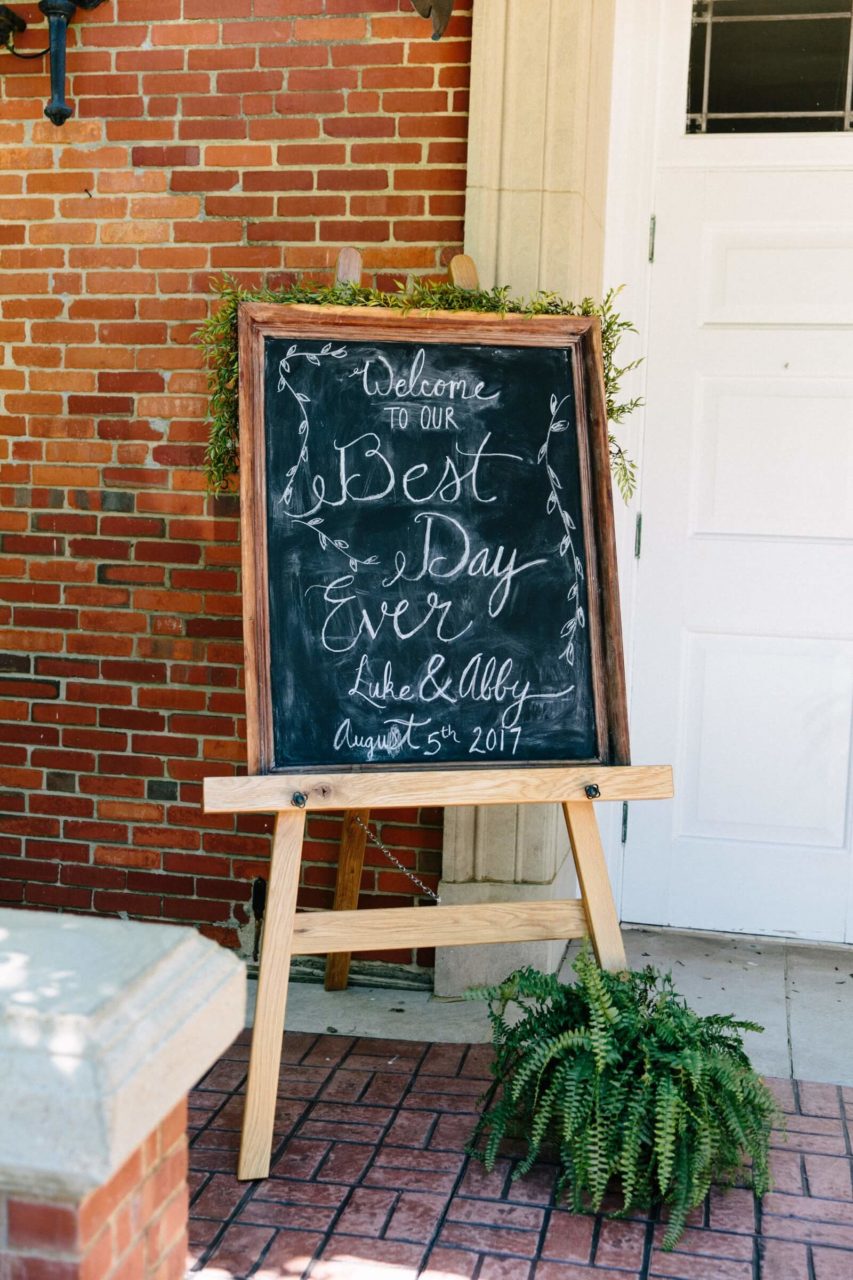 Welcome
TO OUR
Best
Day
Ever
Luke & Abby
August 5th 2017